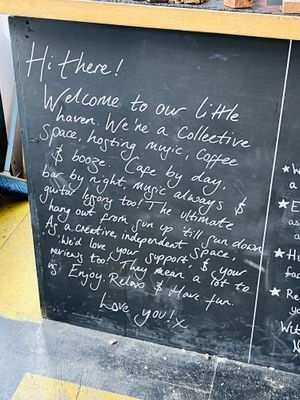 Hi there!
Welcome to our little
haven. We're a collective
space, hosting music, coffee
& booze. Cafe by day,
bar by night, music always &
guitar lessons too! The ultimate
hang out from sun up till sun down.
As a creative, independent space,
We'd love your support, & your
reviews too! They mean a lot to
us. Enjoy, Relax & Have fun.
Love you! x